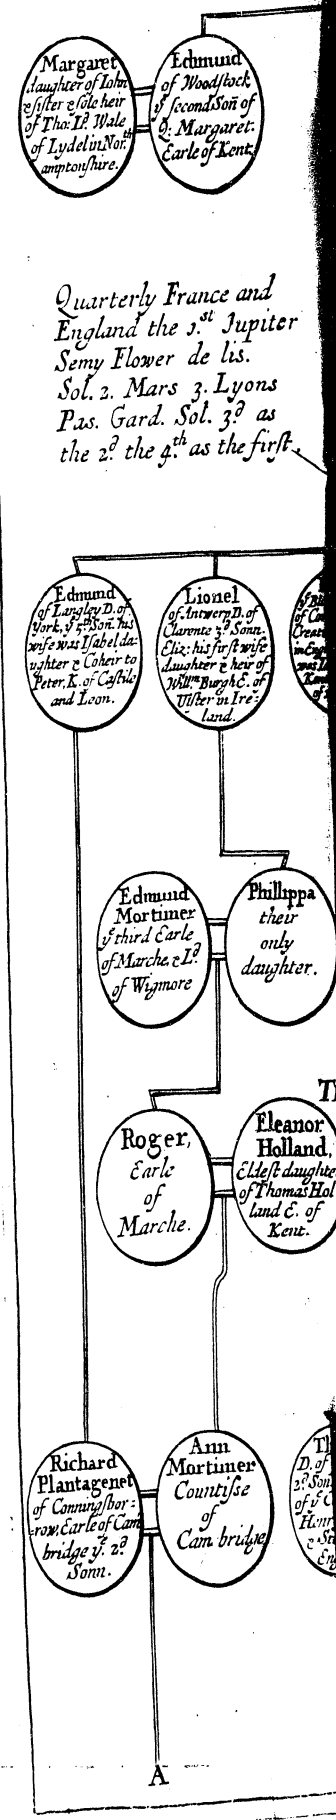 Margaret
daughter of Iohn
& sister & sole heir
of Tho: L.d Wale
of Lydel in Nor.th
amptonshire.
Edmund
of Woodstock
ye second Son of
Q: Margaret.
Earle of Kent
Quarterly France and
England the 1.st Jupiter
Semy Flower de lis.
Sol. 2. Mars 3. Lyons
Pas. Gard. Sol. 3.d as
the 2.d the 4.th as the first.
Edmund
of Langley D. of
York, ye 5th Son. his
wife was Isabel da-
ughter & Coheir to
Peter, K. of Castile
and Leon.
Lionel
of Antwerp D. of
Clarente 3.d Sonn.
Eliz: his first wife
daughter & heir of
Will.m Burgh E. of
Ulster in Ire-
land.
Edmund
Mortimer
ye third Earle
of Marche. & L.d
of Wigmore
Phillippa
their
only
daughter.
Roger,
Earle
of
Marche.
Eleanor
Holland,
Eldest daughte
of Thomas Hol
land E. of
Kent.
Richard
Plantagenet
of Conningsbor-
-row, Earle of Cam
bridge ye. 2.d
Sonn.
Ann
Mortimer
Countisse
of
Cam bridge
D. of
2.d Son
of ye
A